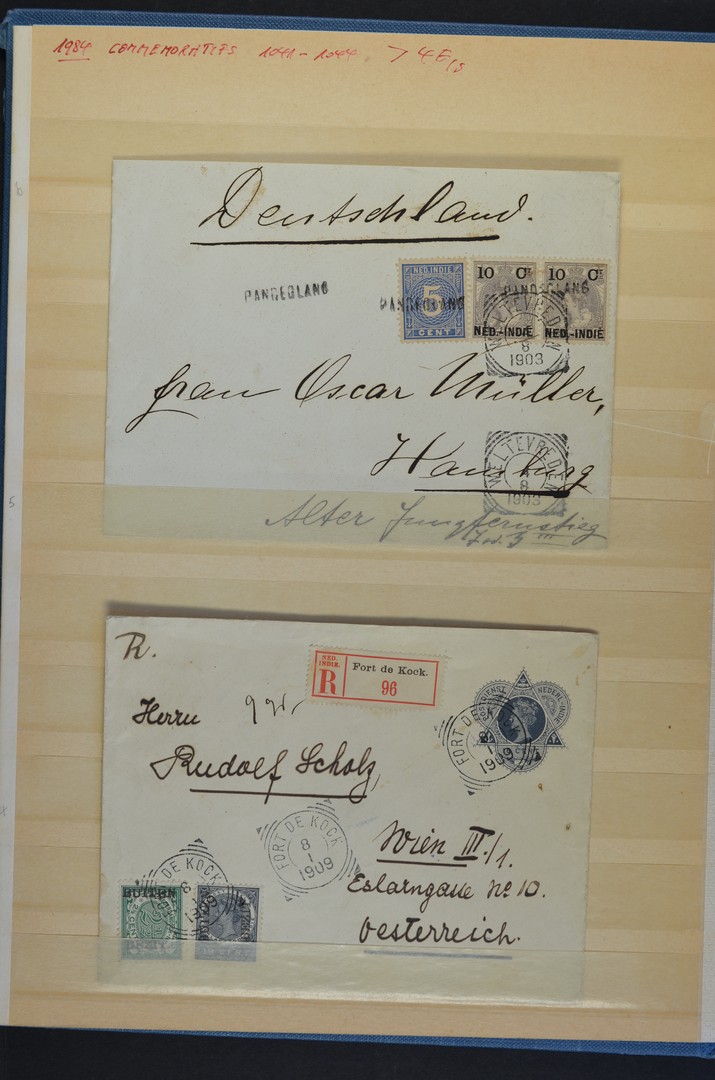 1984 COMMEMORATIFS 1041 - 1044 >
Deutschland.
PANDEGLANG
PANDEGLANG
PANDEGLANG
NED. INDIE
5
CENT
10 Ct
NED.-INDIË
10 Ct
NED.-INDIË
WELTEVREDEN
8
1903
Frau Oscar Müller,
Hamburg
WELTEVREDEN
8
1903
Alter Jungfernstieg
III
R.
NED. INDIE.
R
Fort de Kock.
96
POSTDIENST NEDERL-INDIE
FORT DE KOCK
8
1
1909
Herrn
Rudolf Scholz,
FORT DE KOCK
8
1
1909
Wien III/1.
Eslarngasse No 10.
Oesterreich.
FORT DE KOCK
8
1
1909
BUITEN